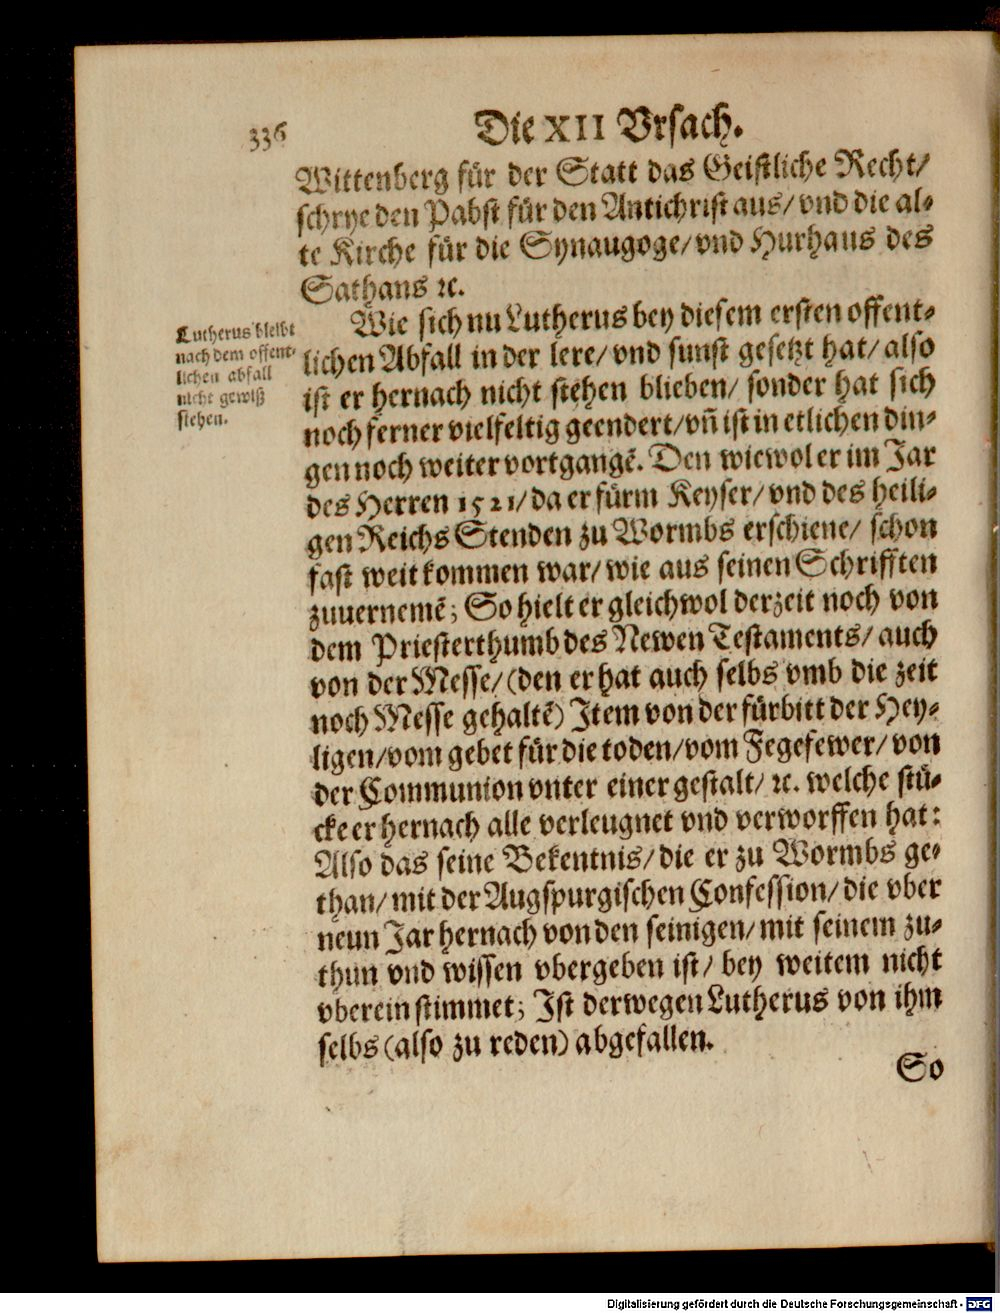 336
Die XII Vrsach.
Wittenberg für der Statt das Geistliche Recht/
schrye den Pabst für den Antichrist aus/ vnd die al-
te Kirche für die Synaugoge/ vnd Hurhaus des
Sathans ꝛc.
Wie sich nu Lutherus bey diesem ersten offent-
lichen Abfall in der lere/ vnd sunst gesetzt hat/ also
ist er hernach nicht stehen blieben/ sonder hat sich
noch ferner vielfeltig geendert/ vñ ist in etlichen din-
gen noch weiter vortgangẽ. Den wiewol er im Jar
des Herren 1521/ da er fürm Keyser/ vnd des heili-
gen Reichs Stenden zu Wormbs erschiene/ schon
fast weit kommen war/ wie aus seinen Schrifften
zuuernemẽ; So hielt er gleichwol derzeit noch von
dem Priesterthumb des Newen Testaments/ auch
von der Messe/ (den er hat auch selbs vmb die zeit
noch Messe gehaltẽ) Item von der fürbitt der Hey-
ligen/ vom gebet für die toden/ vom Fegefewer/ von
der Communion vnter einer gestalt/ ꝛc. welche stü-
cke er hernach alle verleugnet vnd verworffen hat:
Also das seine Bekentnis/ die er zu Wormbs ge-
than/ mit der Augspurgischen Confession/ die vber
neun Jar hernach von den seinigen/ mit seinem zu-
thun vnd wissen vbergeben ist/ bey weitem nicht
vberein stimmet; Ist derwegen Lutherus von ihm
selbs (also zu reden) abgefallen.
So
Lutherus bleibt
nach dem offent-
lichen abfall
nicht gewiß
stehen.
Digitalisierung gefördert durch die Deutsche Forschungsgemeinschaft - DFG